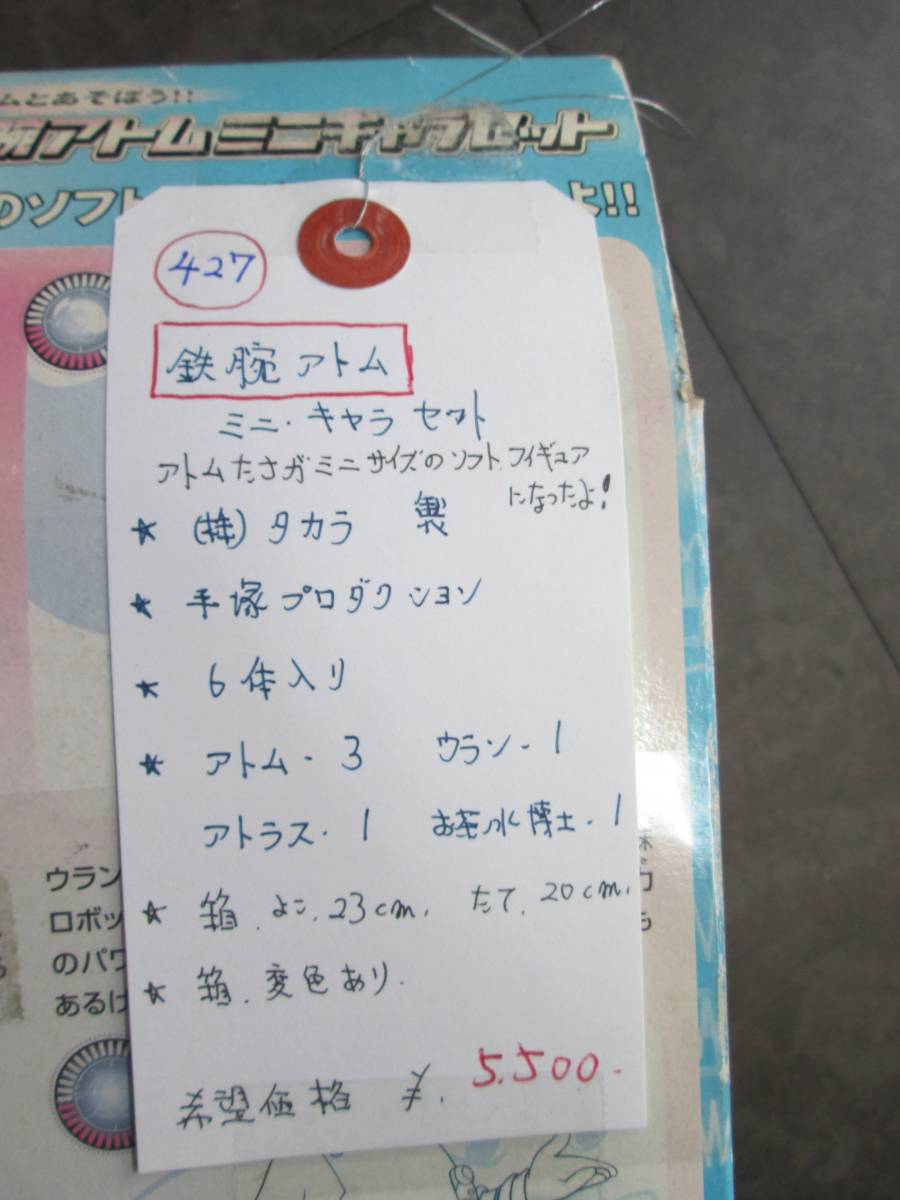 ムとあそぼう!!
腕アトムミニキャラセット
のソフト
よ!!
427
鉄腕アトム
ミニ・キャラセット
アトムたさがミニサイズのソフトフィギュア
になったよ!
★ (株)タカラ 製
★ 手塚プロダクション
★ 6体入り
★ アトム - 3 ウラン - 1
アトラス・1 お茶ノ水博士・1
★ 箱.よこ.23cm. たて.20cm.
★ 箱.変色あり.
希望価格 ¥. 5.500-
ウラン
ロボッ
のパワ
あるけ